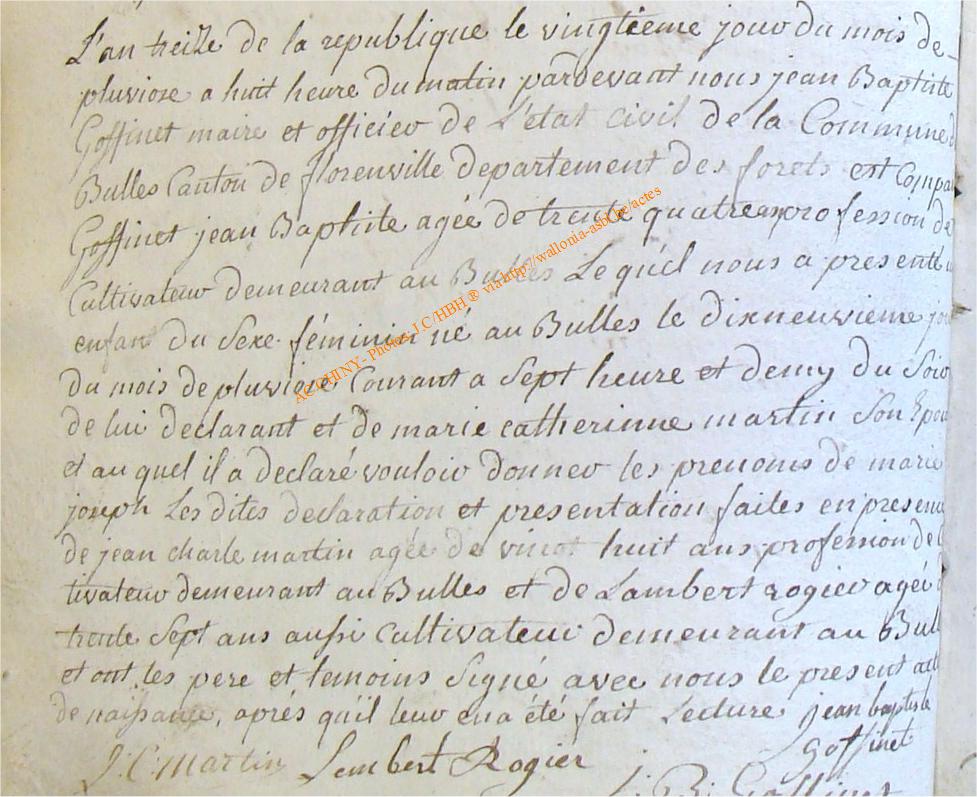 L'an treize de la republique le vingtieme jour du mois de
pluviose a huit heure du matin pardevant nous jean Baptiste
Goffinet maire et officier de L'état Civil de la Commune d
Bulles Canton de florenville departement des forets est Compa
Goffinet jean Baptiste agée de trente quatre ans profession de
Cultivateur demeurant au Bulles Lequel nous a presenté u
enfant du Sexe féminin né au Bulles le dixneuvieme jou
du mois de pluviose Courant a Sept heure et demy du Soir
de lui declarant et de marie catherinne martin Son Epou
et au quel il a declaré vouloir donner les prenoms de marie
joseph Les dites declaration et presentation faites en presence
de jean charle martin agée de vingt huit ans profession de C
tivateur demeurant au Bulles et de Lambert rogier agé d
trente Sept ans aussi Cultivateur demeurant au Bull
et ont les pere et temoins Signé avec nous le present acte
de naissance, aprés qu'il leur en a été fait Lecture, jean baptiste
J: C: Martin Lembert Rogier Goffinet
J: B: Goffinet
ACCHINY - Photos: J.C/HBH ® via http://wallonia-asbl.be/actes